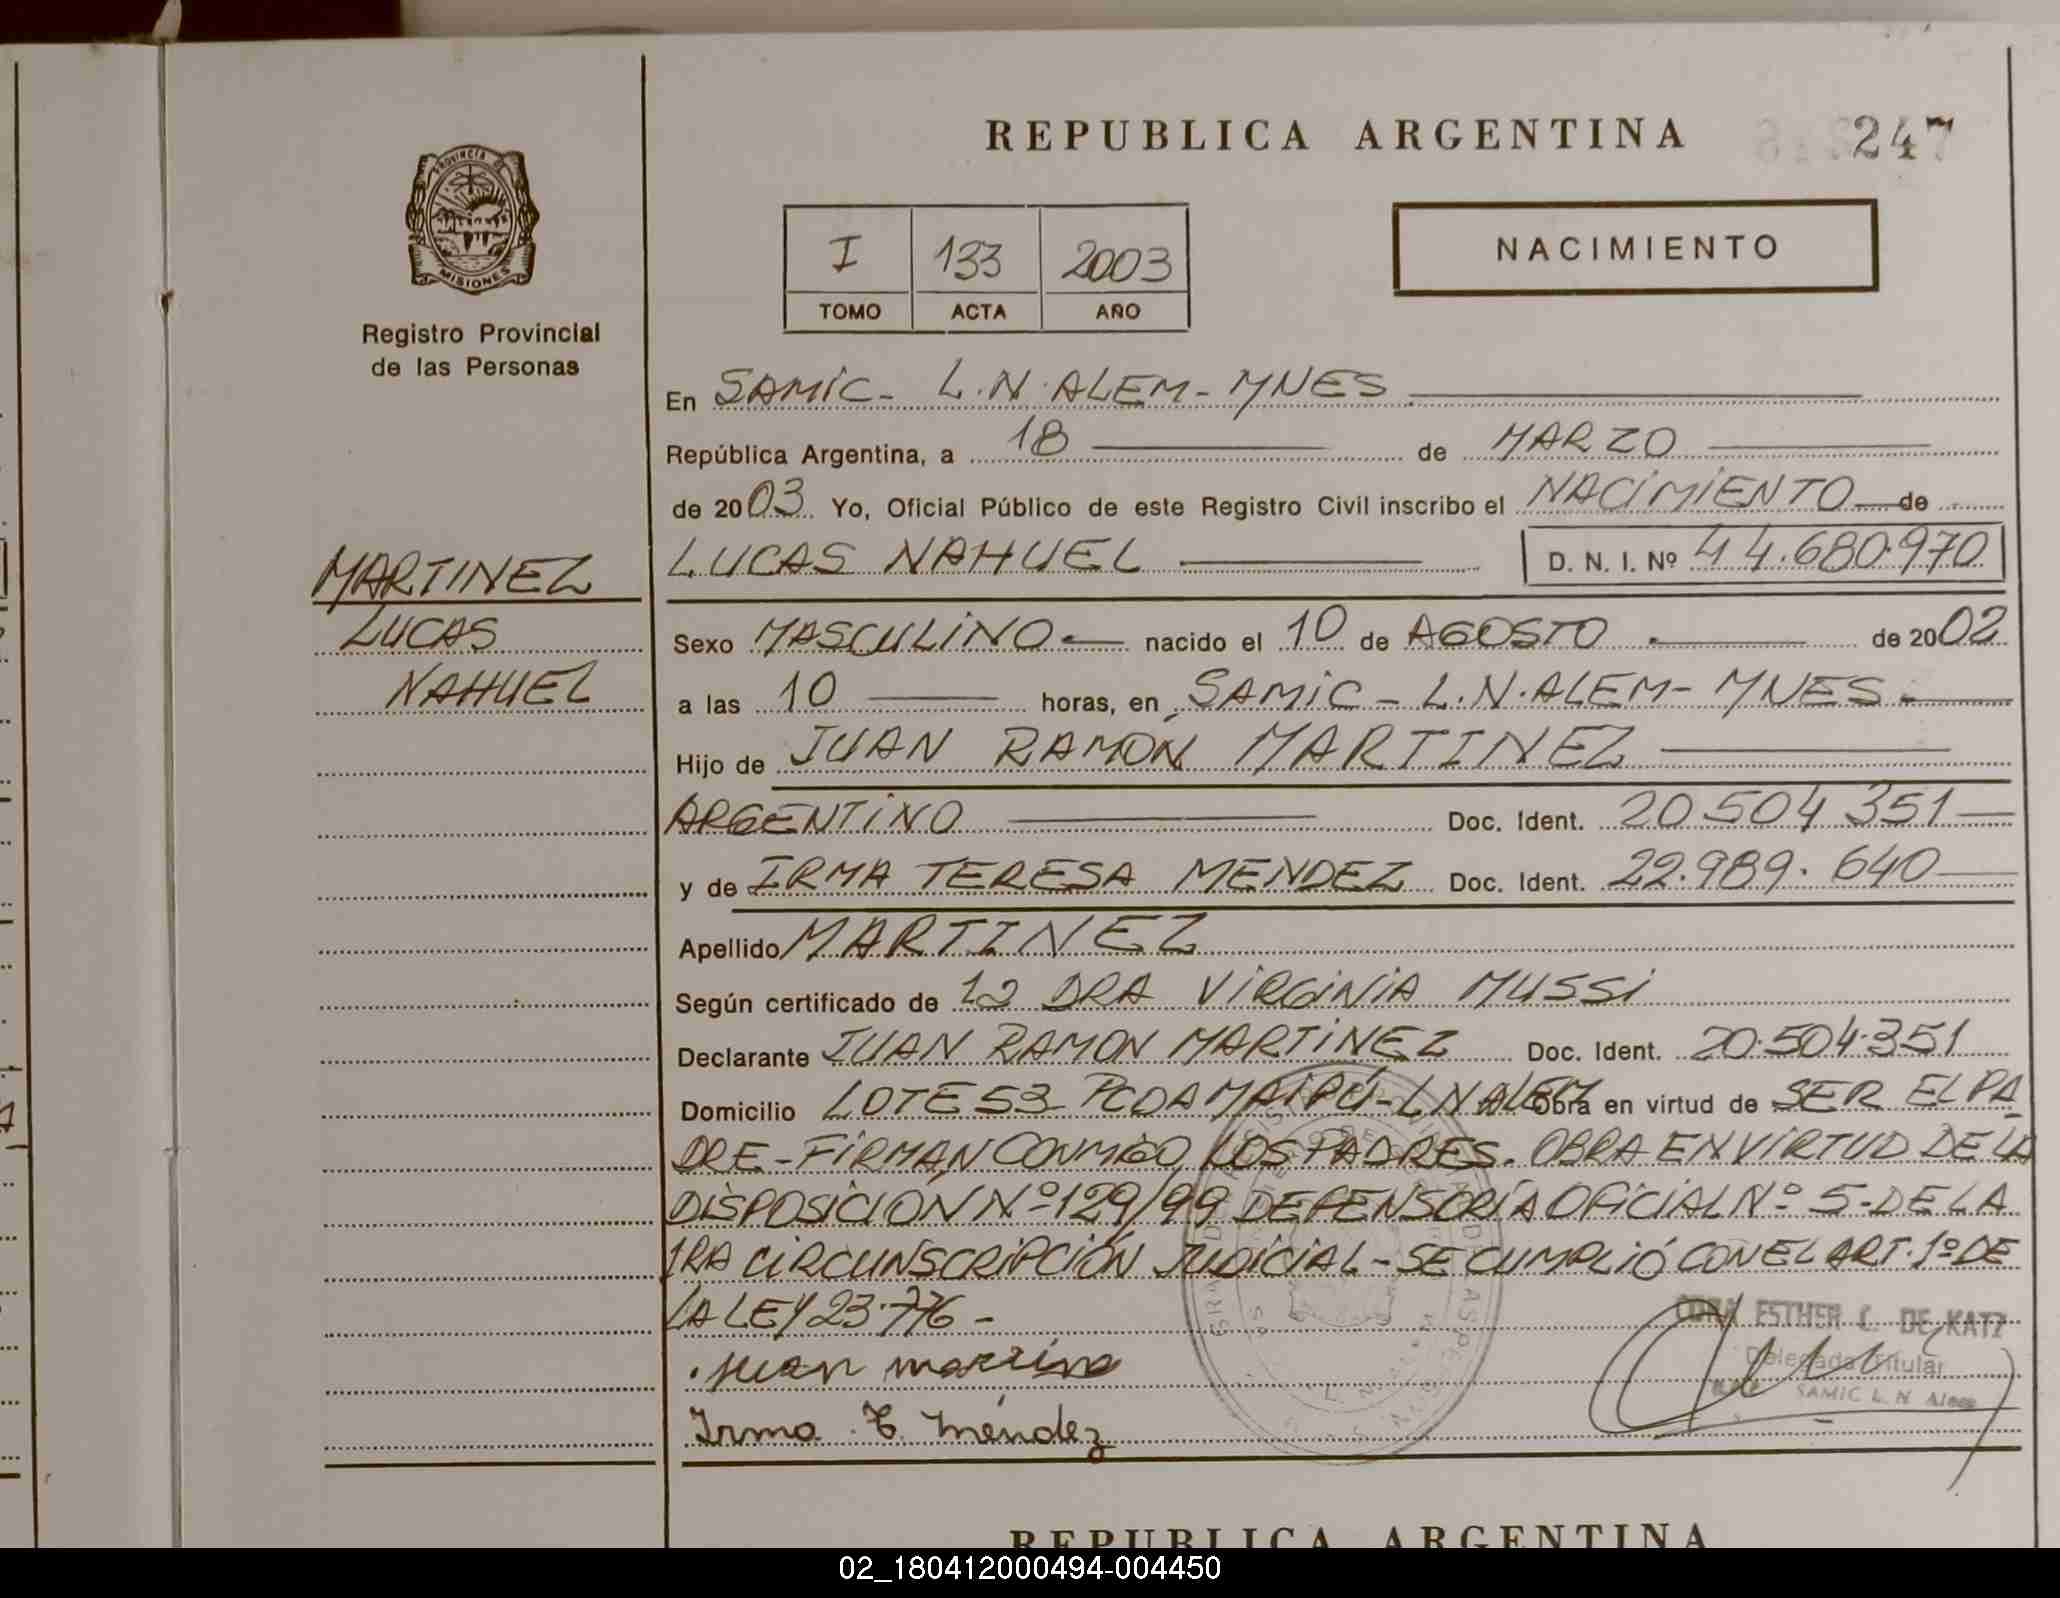 REPUBLICA ARGENTINA 247
PROVINCIA DE
MISIONES
Registro Provincial
de las Personas
I 133 2003
TOMO ACTA AÑO
NACIMIENTO
En SAMIC- L.N. ALEM- MNES
República Argentina, a 18 de MARZO
de 2003 Yo, Oficial Público de este Registro Civil inscribo el NACIMIENTO de
LUCAS NAHUEL D. N. I. Nº 44.680.970
MARTINEZ
LUCAS
NAHUEL
Sexo MASCULINO nacido el 10 de AGOSTO de 2002
a las 10 horas, en SAMIC- L.N. ALEM- MNES-
Hijo de JUAN RAMÓN MARTINEZ
ARGENTINO Doc. Ident. 20.504.351
y de IRMA TERESA MENDEZ Doc. Ident. 22.989.640
Apellido MARTINEZ
Según certificado de DRA VIRGINIA MUSSI
Declarante JUAN RAMON MARTINEZ Doc. Ident. 20.504.351
Domicilio LOTE 53 PCDA MAIPÚ-L N ALEM Obra en virtud de SER EL PA
DRE-FIRMAN CONMIGO LOS PADRES. OBRA EN VIRTUD DE LA
DISPOSICIÓN Nº 129/99 DEFENSORÍA OFICIAL Nº 5-DE LA
1RA CIRCUNSCRIPCIÓN JUDICIAL-SE CUMPLIÓ CON EL ART. 1º DE
LA LEY 23.776-
CORA ESTHER C. DE KATZ
Delegada Titular
SAMIC L. N. Alem
Juan
Irma T. Méndez
REPUBLICA ARGENTINA
02_180412000494-004450